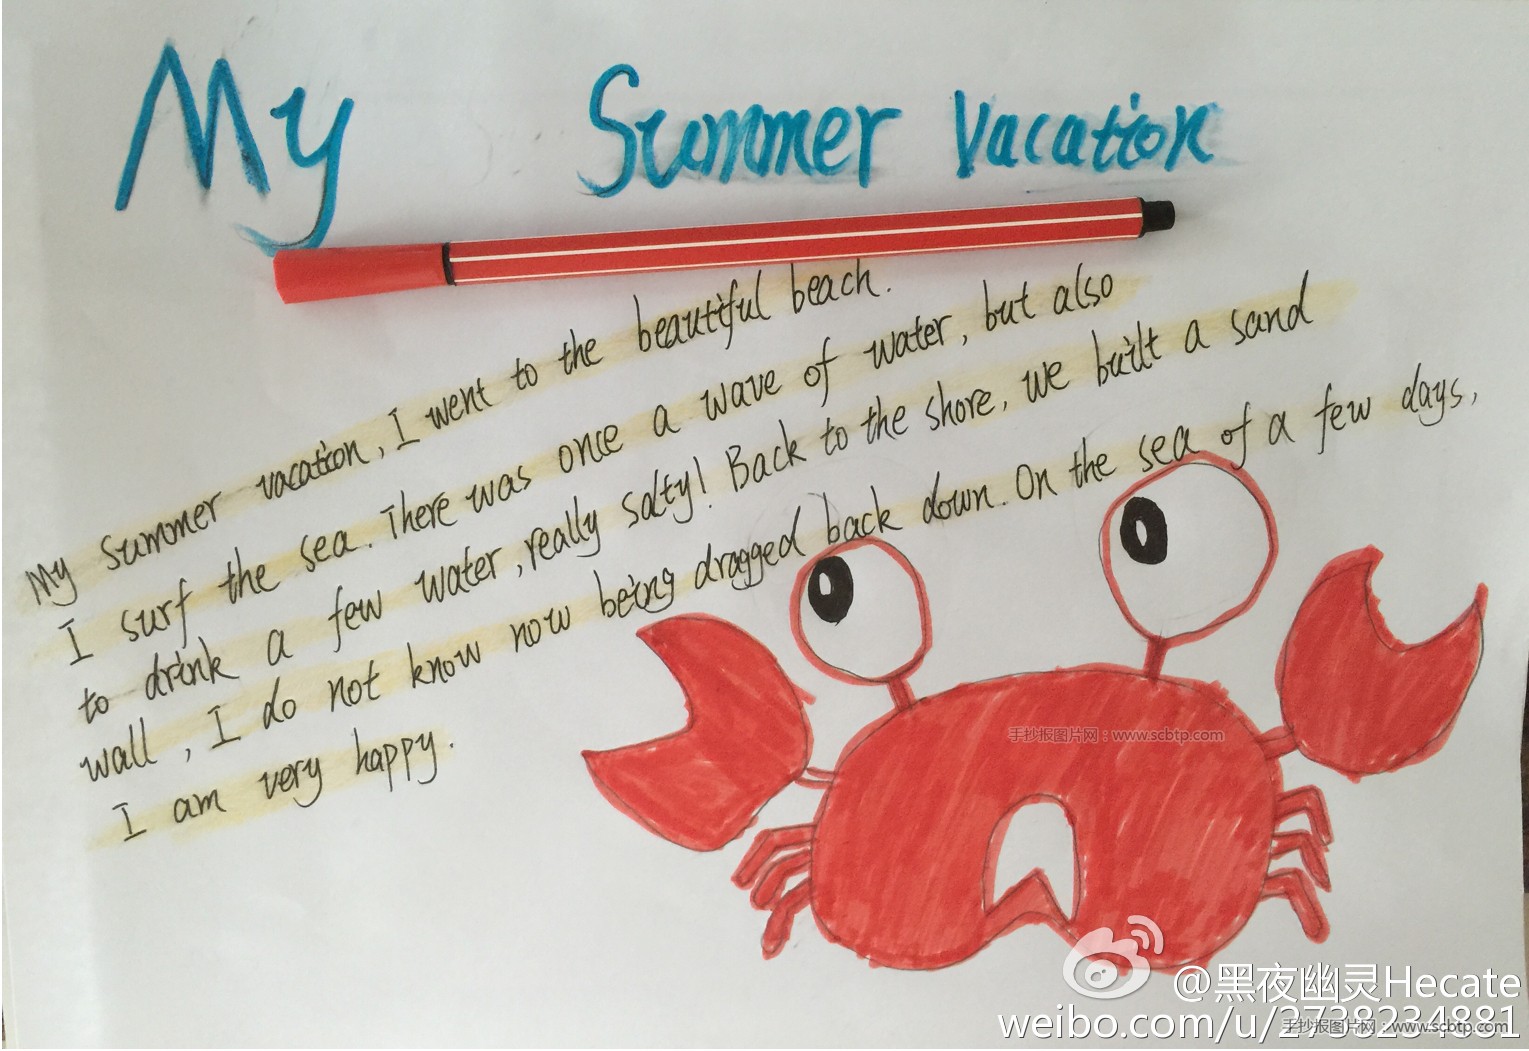 My Summer Vacation
My summer vacation, I went to the beautiful beach.
I surf the sea. There was once a wave of water, but also
to drink a few water, really salty! Back to the shore, we built a sand
wall, I do not know now being dragged back down. On the sea of a few days,
I am very happy.
手抄报图片网：www.scbtp.com
@黑夜幽灵Hecate
weibo.com/u/2738234881
手抄报图片网：www.scbtp.com